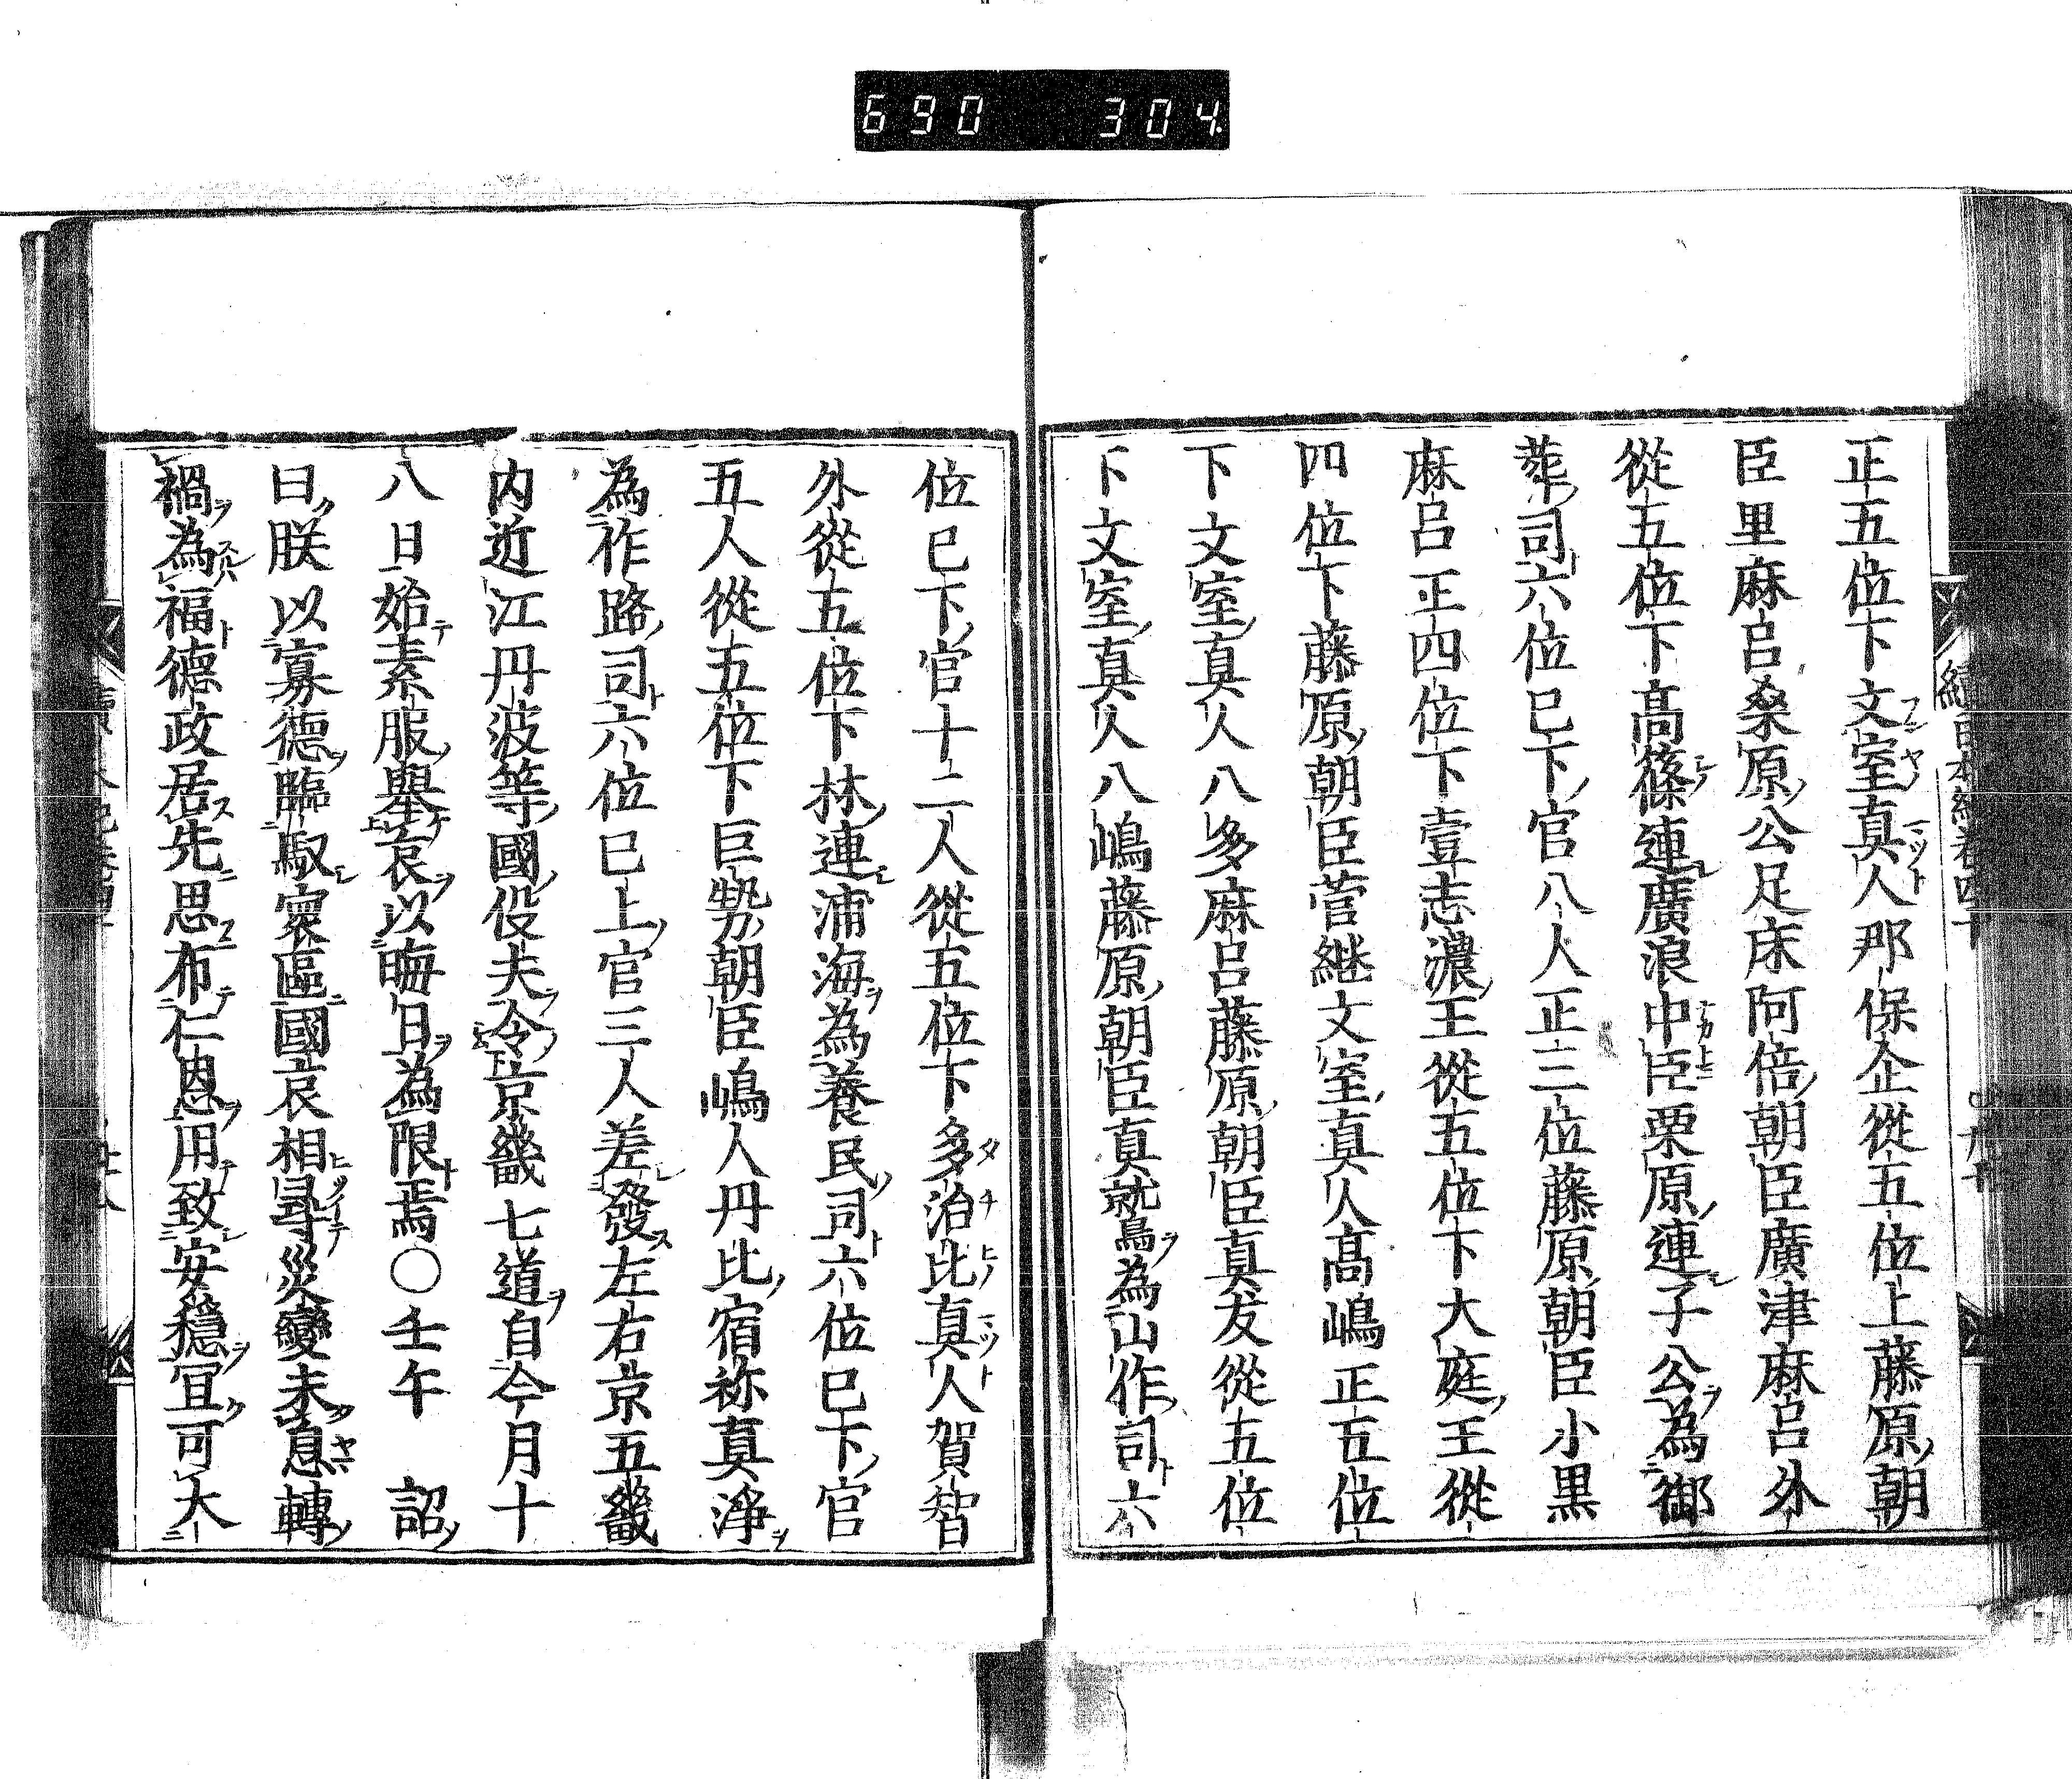 690 304
正五位下文室真人那保企從五位上藤原朝
臣里麻呂桑原公足床阿倍朝臣廣津麻呂外
從五位下髙篠連廣浪中臣栗原連子公為御
葬司六位已下官八人正三位藤原朝臣小黒
麻呂正四位下壹志濃王從五位下大庭王從
四位下藤原朝臣菅継文室真人髙嶋正五位
下文室真人八多麻呂藤原朝臣真友從五位
下文室真人八嶋藤原朝臣真就鳥為山作司六
位已下官十二人從五位下多治比真人賀智
外從五位下林連浦海為養民司六位已下官
五人從五位下巨勢朝臣嶋人丹比宿祢真淨
為作路司六位已上官三人差發左右京五畿
内近江丹波等國役夫令京畿七道自今月十
八日始素服舉哀以晦日為限焉〇壬午 詔
曰朕以寡德臨馭寰區國哀相尋災變未息轉
禍為福德政居先思布仁恩用致安穩冝可大